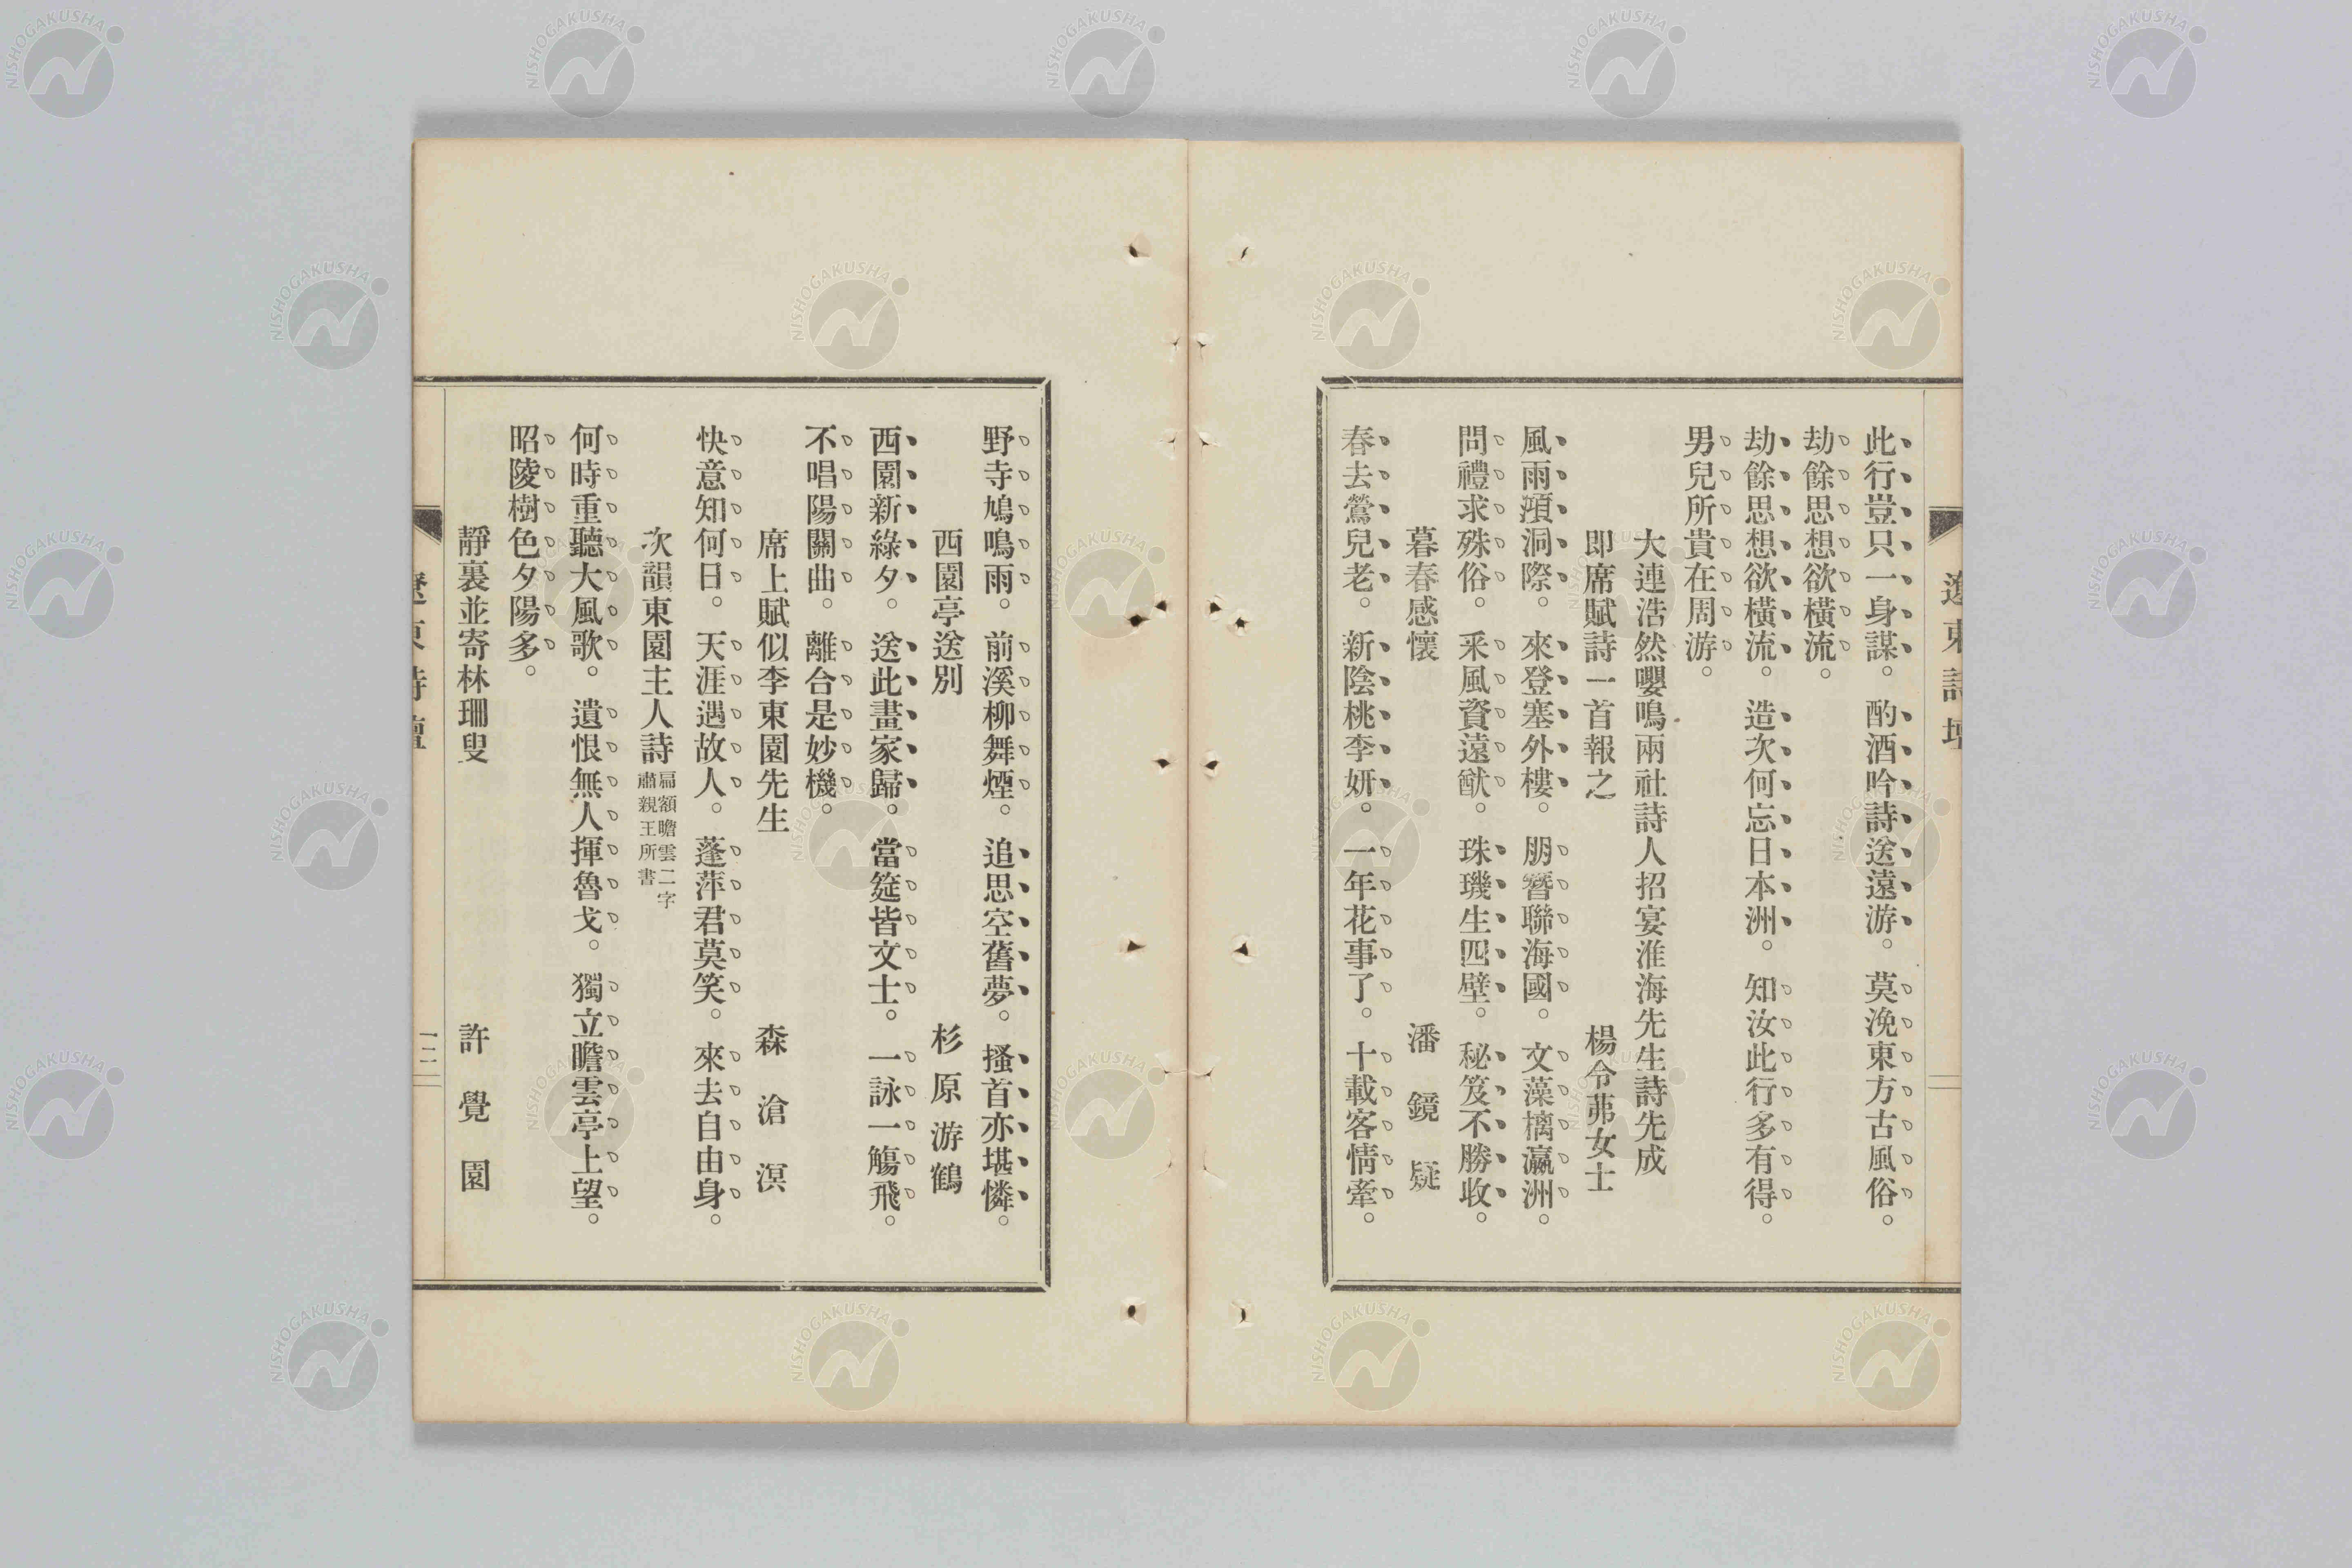 此行豈只一身謀。酌酒吟詩送遠游。莫浼東方古風俗。
劫餘思想欲橫流。
劫餘思想欲橫流。造次何忘日本洲。知汝此行多有得。
男兒所貴在周游。
大連浩然嚶鳴兩社詩人招宴淮海先生詩先成
即席賦詩一首報之 楊令茀女士
風雨澒洞際。來登塞外樓。朋簪聯海國。文藻摛瀛洲。
問禮求殊俗。釆風資遠猷。珠璣生四壁。秘笈不勝收。
暮春感懷 潘鏡疑
春去鶯兒老。新陰桃李妍。一年花事了。十載客情牽。
野寺鳩鳴雨。前溪柳舞煙。追思空舊夢。搔首亦堪憐。
西園亭送別 杉原游鶴
西園新綠夕。送此畫家歸。當筵皆文士。一詠一觴飛。
不唱陽關曲。離合是妙機。
席上賦似李東園先生 森滄溟
快意知何日。天涯遇故人。蓬萍君莫笑。來去自由身。
次韻東園主人詩 扁額瞻雲二字
肅親王所書
何時重聽大風歌。遺恨無人揮魯戈。獨立瞻雲亭上望。
昭陵樹色夕陽多。
靜裏並寄林珊叟 許覺園
遼東詩壇
一二
NISHOGAKUSHA